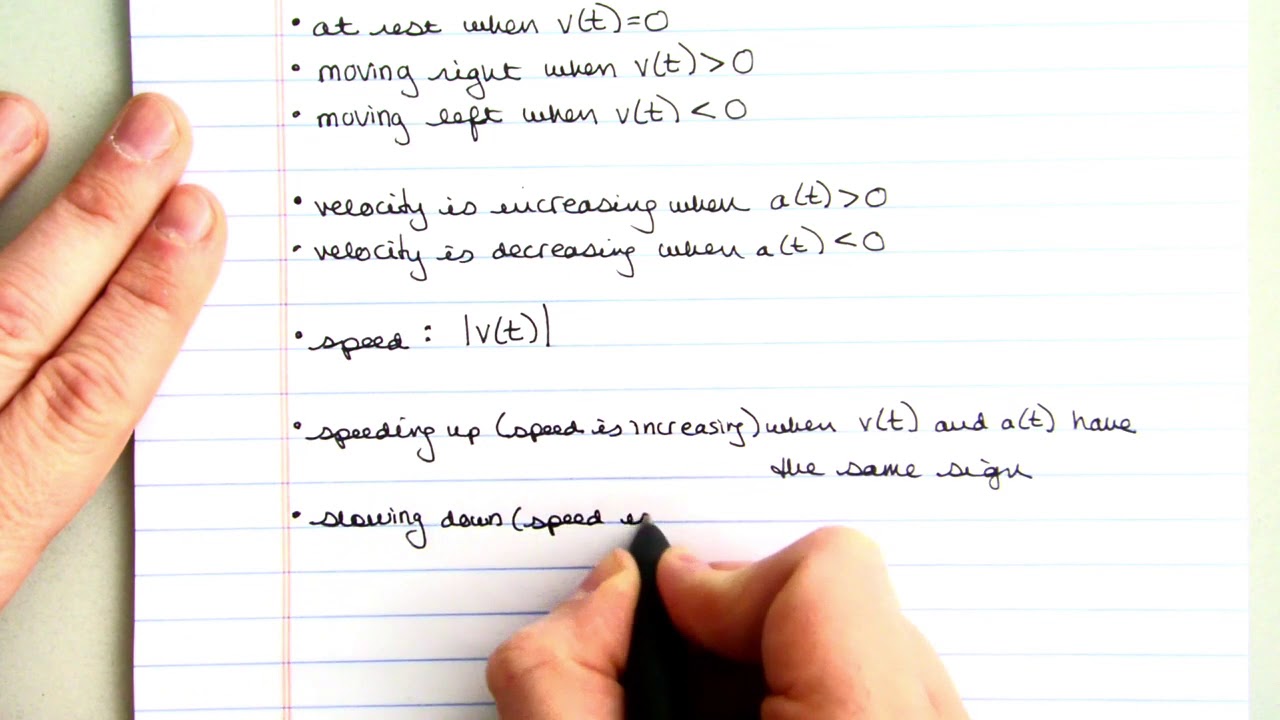 • at rest when v(t)=0
• moving right when v(t)>0
• moving left when v(t)<0
• velocity is increasing when a(t)>0
• velocity is decreasing when a(t)<0
• speed: |v(t)|
• speeding up (speed is increasing) when v(t) and a(t) have
the same sign
• slowing down (speed is